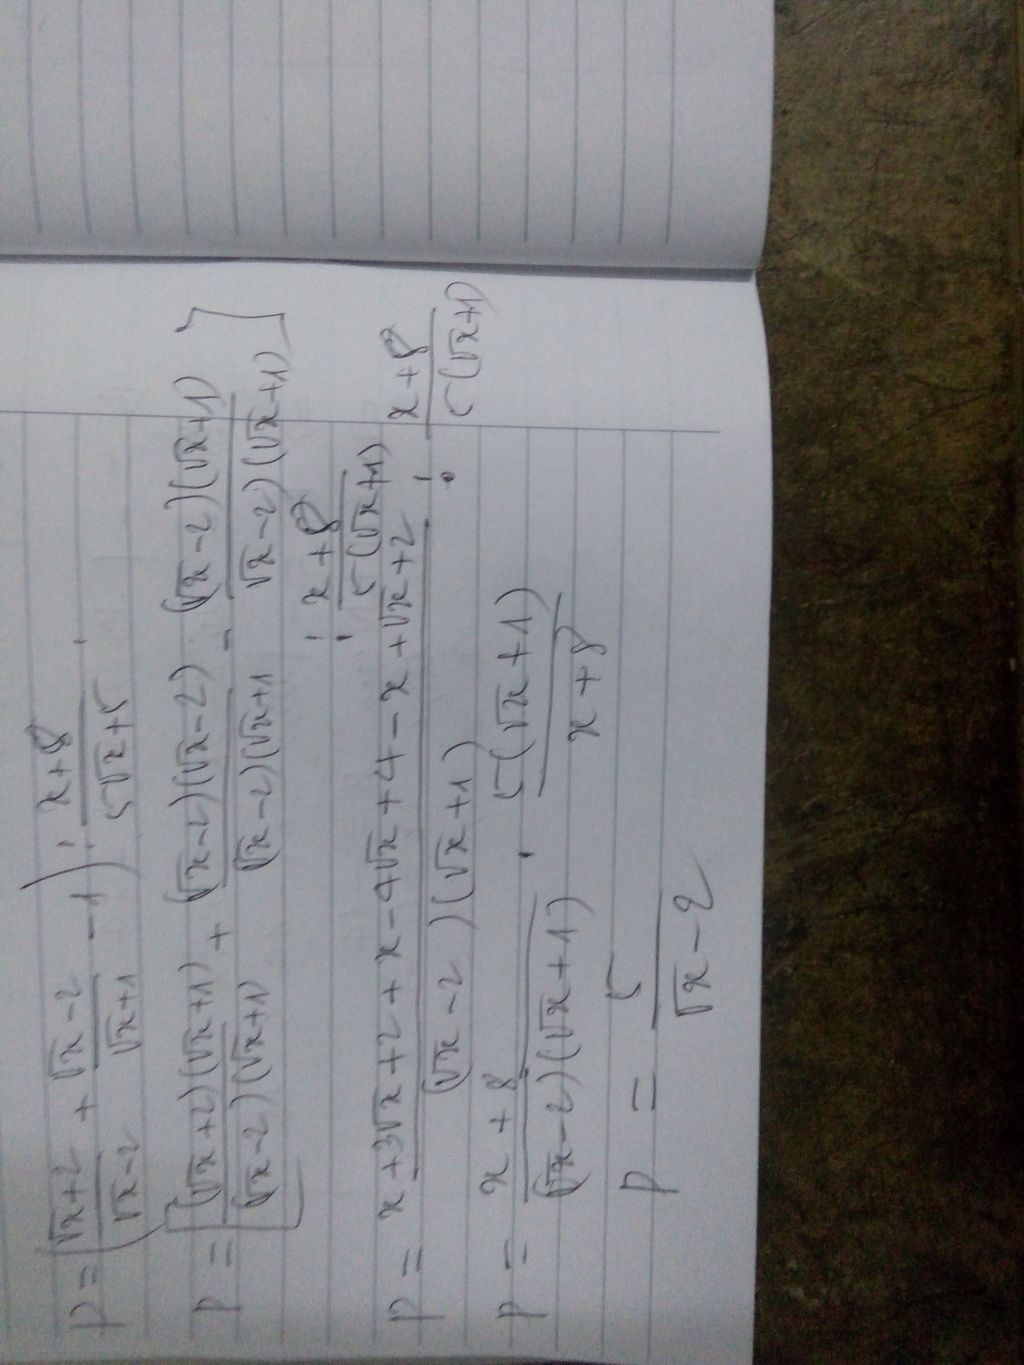 P = (√x+2 / √x-2 + √x-2 / √x+1 - 1) : x+8 / 5√x+5
P = [(√x+2)(√x+1) / (√x-2)(√x+1) + (√x-2)(√x-2) / (√x-2)(√x+1 - (√x-2)(√x+1) / √x-2)(√x+1)]
: x+8 / 5(√x+1)
P = x+3√x+2+x-4√x+4-x+√x+2 / (√x-2)(√x+1) : x+8 / 5(√x+1)
P = x+8 / (√x-2)(√x+1) . 5(√x+1) / x+8
P = 5 / √x-2